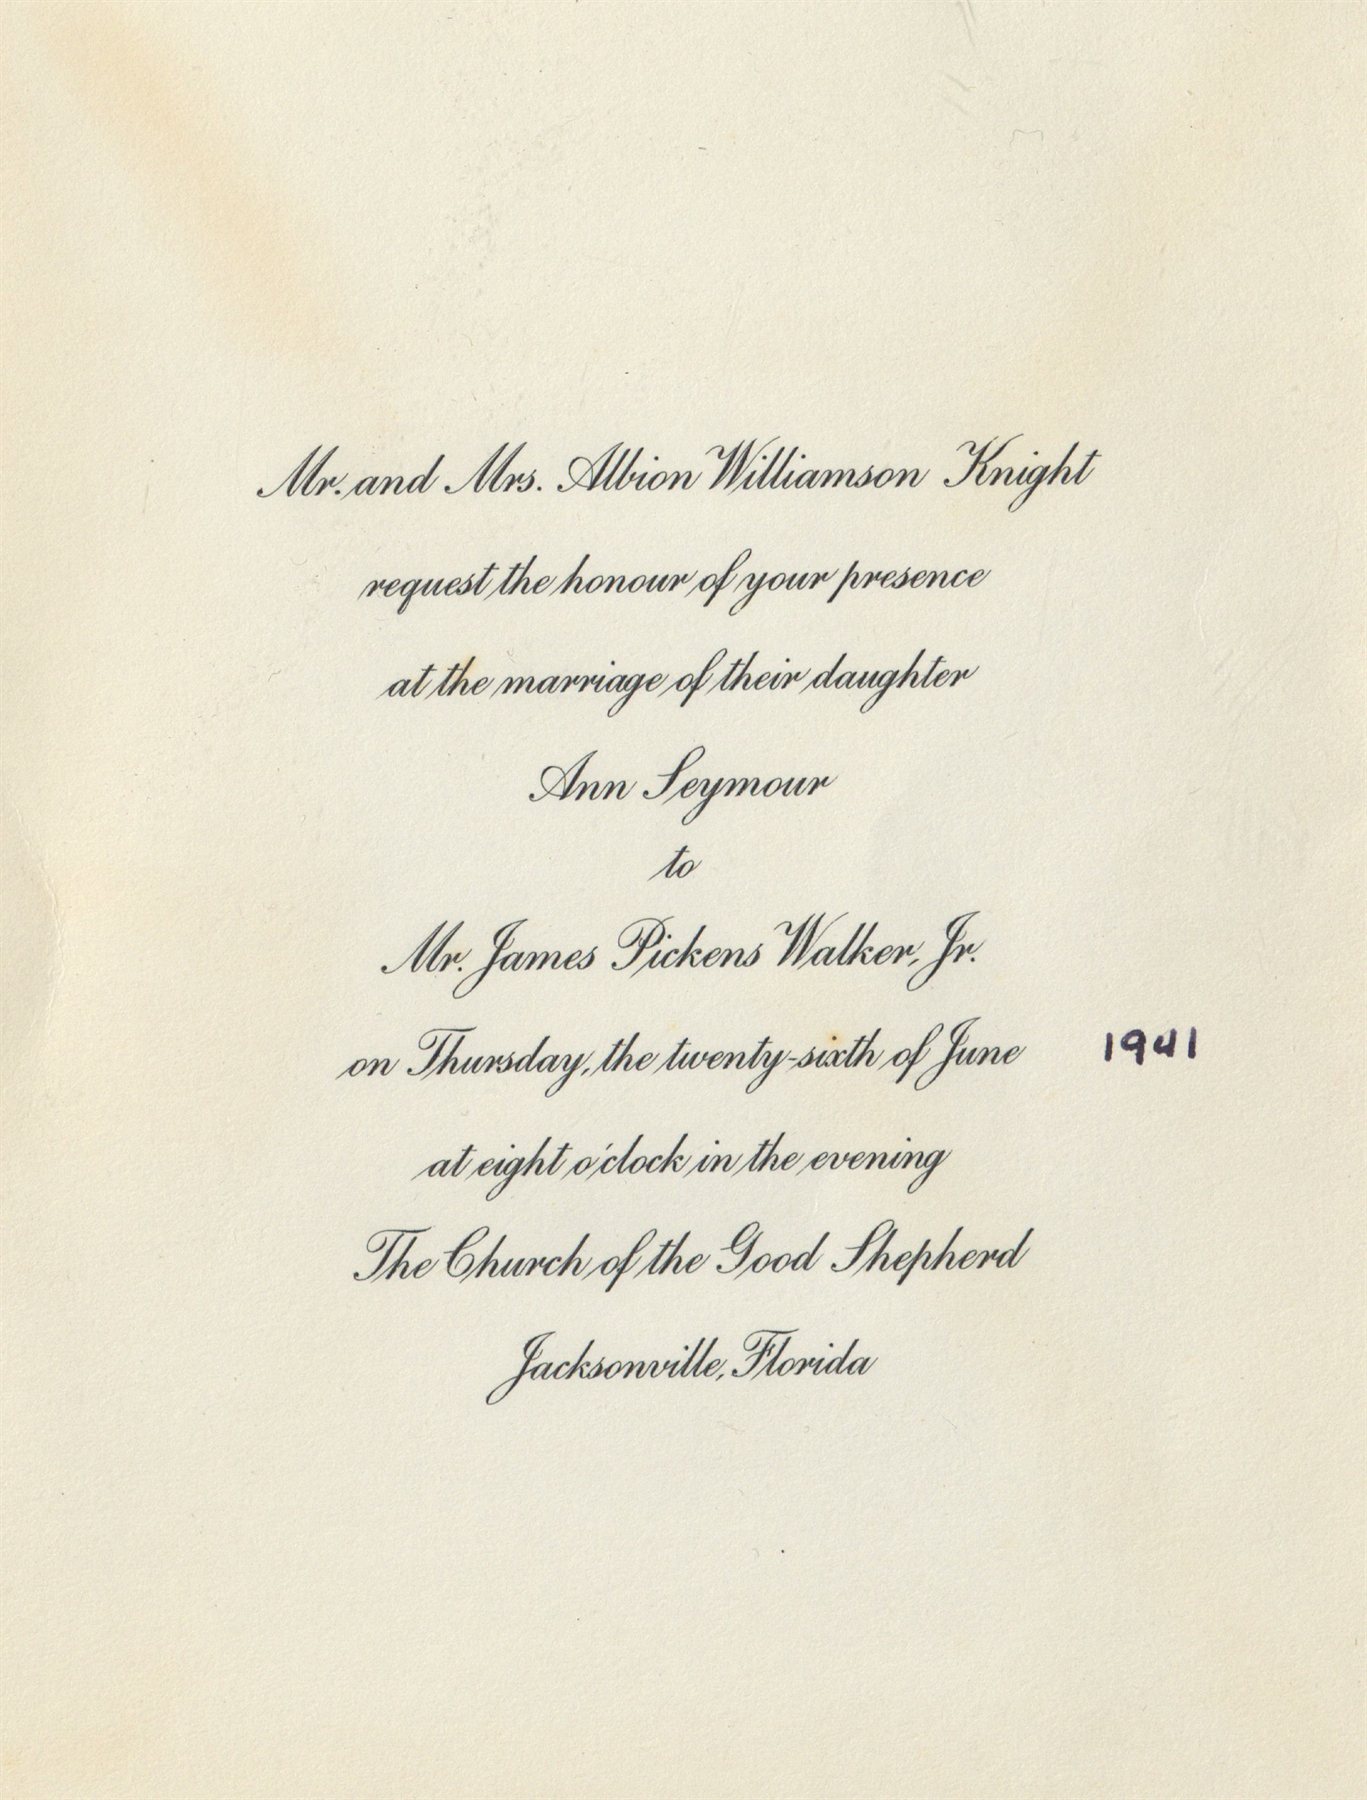 Mr. and Mrs. Albion Williamson Knight
request the honour of your presence
at the marriage of their daughter
Ann Seymour
to
Mr. James Pickens Walker, Jr.
on Thursday, the twenty-sixth of June 1941
at eight o'clock in the evening
The Church of the Good Shepherd
Jacksonville, Florida